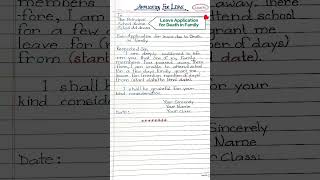 Application For Leave
To
The Principal
School Name
School Address
Leave Application
for Death in Family
Sub:- Application for leave due to Death
in family.
Respected Sir,
I am deeply saddened to inform
you that one of my family
members has passed away, there
fore, I am unable to attend school
for a few days. Kindly grant me
leave for (mention number of days)
from (start date) to (end date).
I shall be grateful for your
kind consideration.
Yours Sincerely
Your Name
Your Class:
Date:
away, there
-fore, I am
attend school
for a few
grant me
leave for
number of days)
from (start
date).
I shall be
for your
kind consid
Sincerely
Name
Date:
Class: